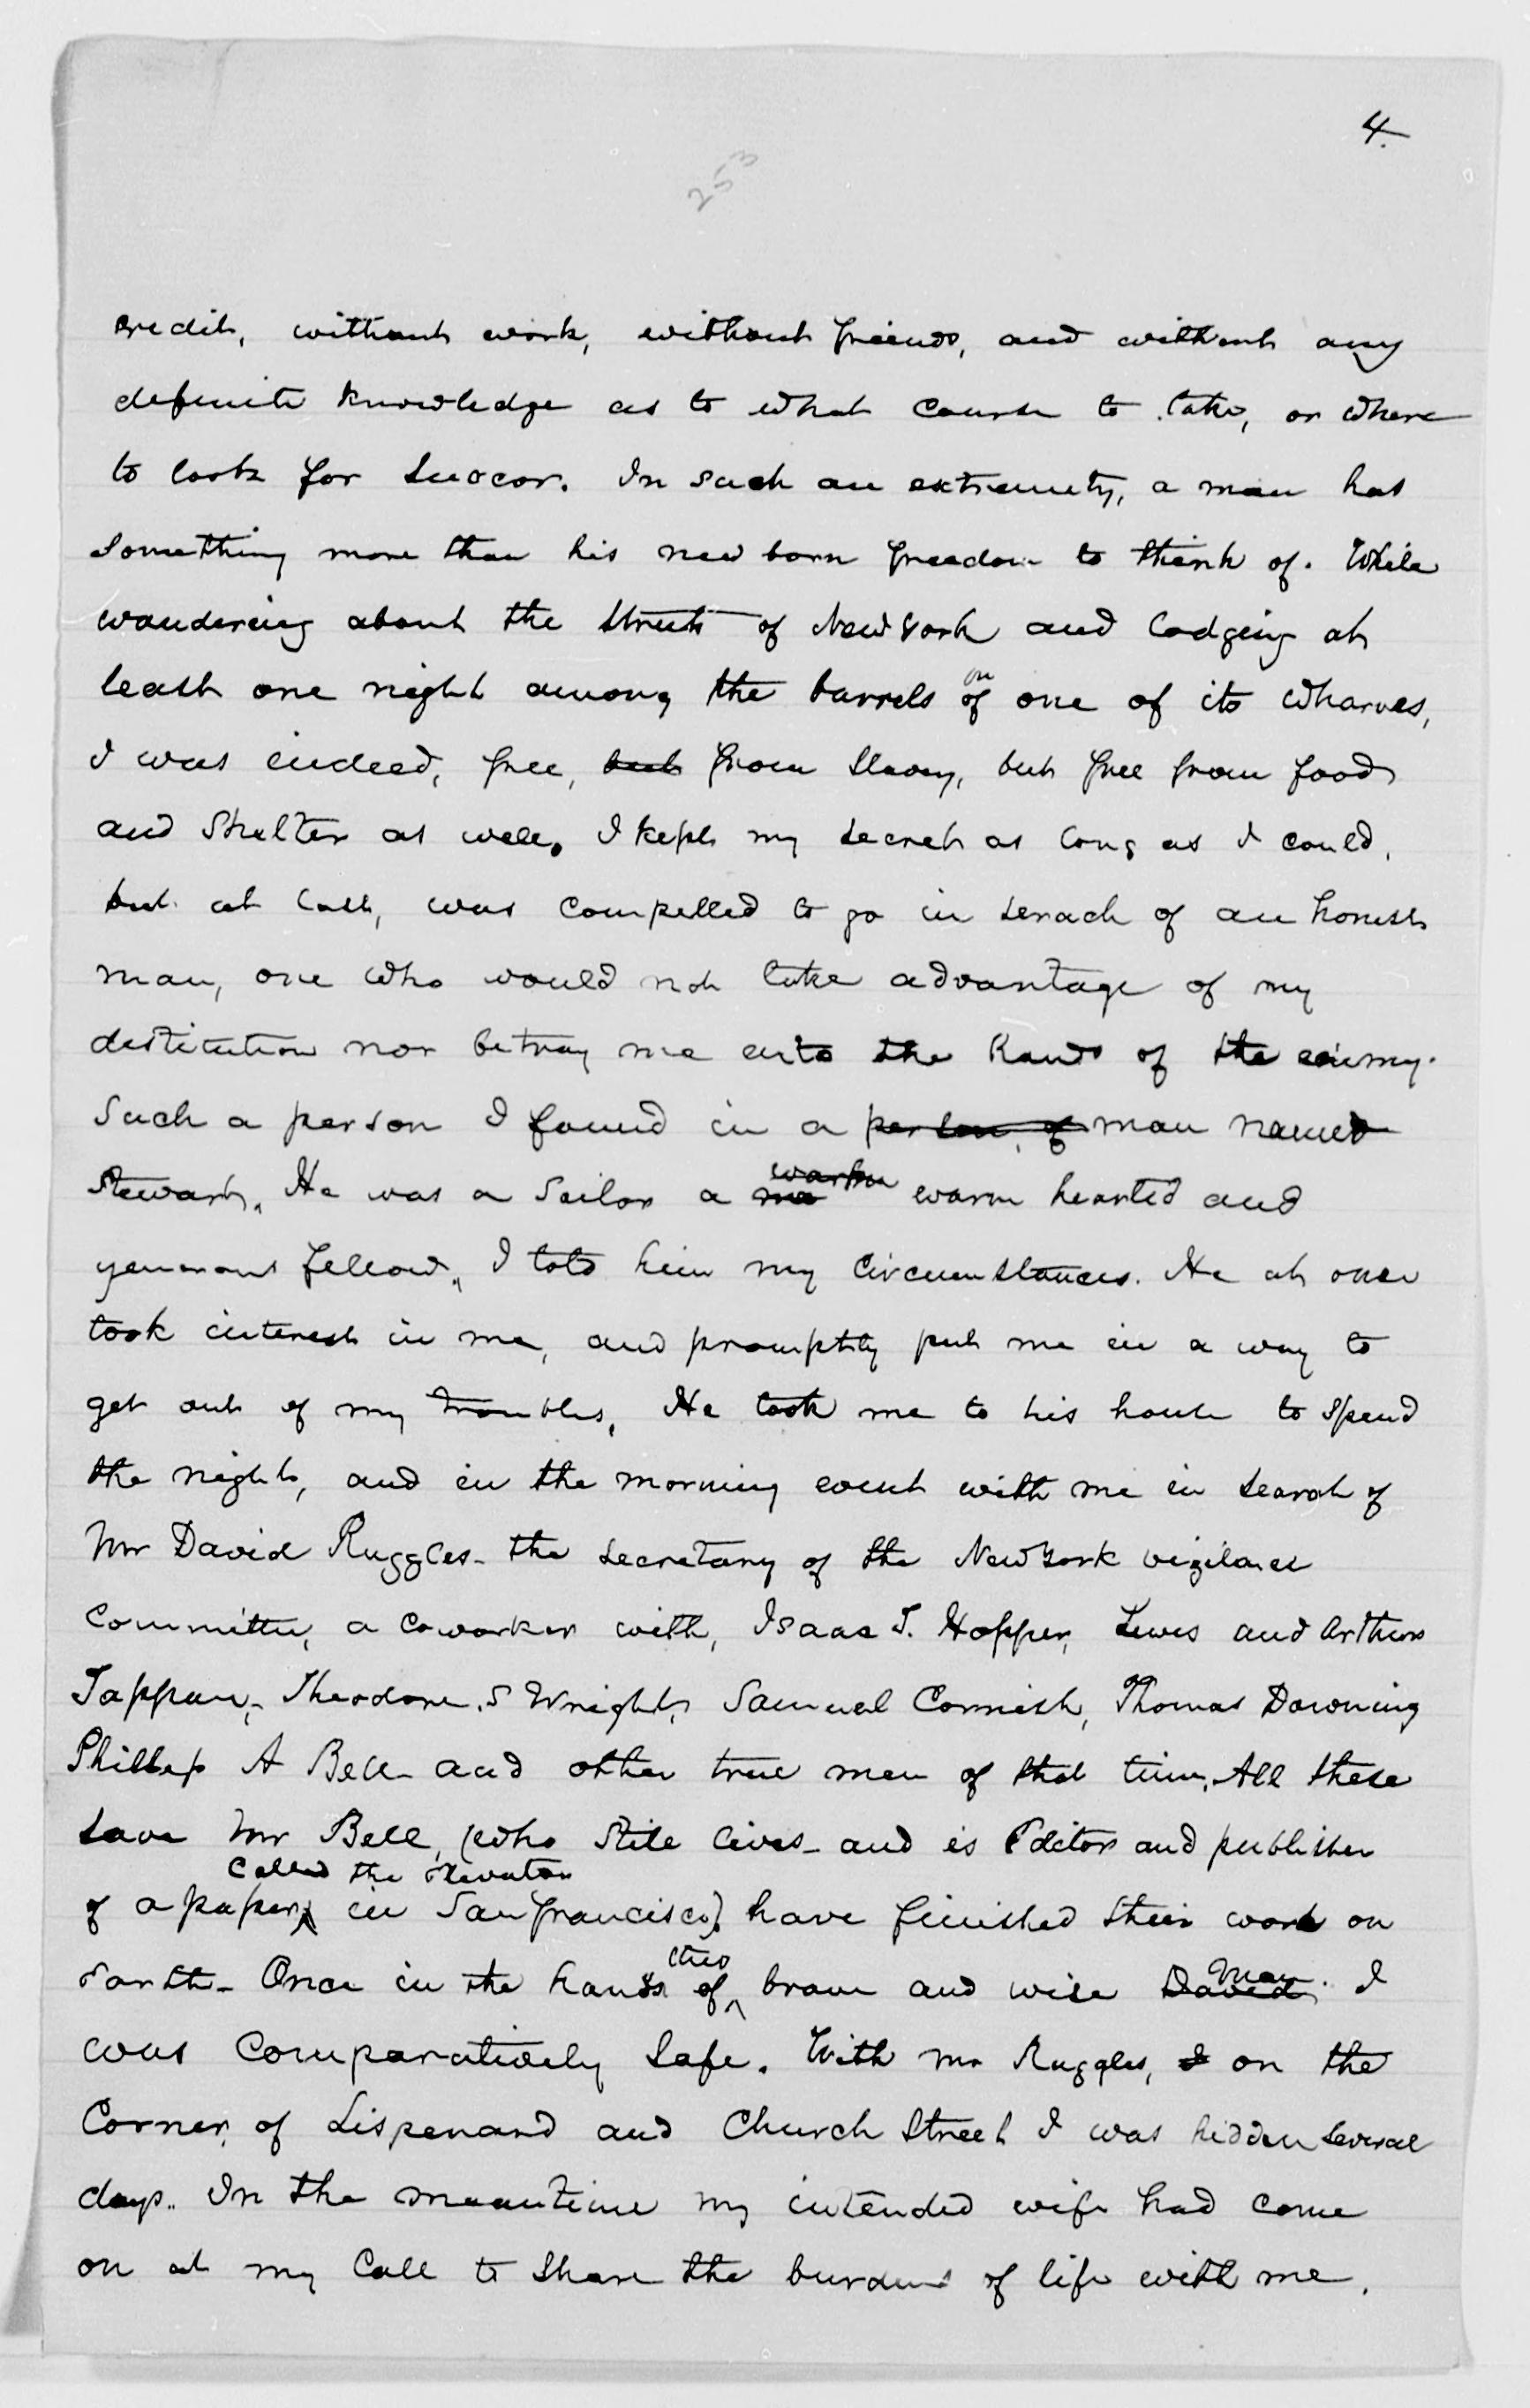 4.
253
credit, without work, without friends, and without any
definite knowledge as to what course to take, or where
to look for succor. In such an extremity, a man has
something more than his new born freedom to think of. While
wandering about the streets of New York and lodging at
least one night among the barrels on of one of its wharves,
I was indeed, free, but from slavery, but free from food
and shelter as well. I kept my secret as long as I could,
but at last, was compelled to go in serach of an honest
man, one who would not take advantage of my
destitution nor betray me into the hands of the enimy.
Such a person I found in a person, of man named
Stewart. He was a sailor a ma warm warm hearted and
generous fellow. I told him my circumstances. He at once
took interest in me, and promptly put me in a way to
get out of my troubles. He took me to his house to spend
the night, and in the morning went with me in search of
Mr David Ruggles - the secretary of the New York vigilance
Committee, a coworker with, Isaac T. Hopper, Lewis and Arthur
Tappan, - Theodore. S Wright, Samuel Cornish, Thomas Downing
Phillip A Bell - and other true men of that time. All these
save Mr Bell, (who still lives - and is Editor and publisher
of a paper, called the Elevator in San francisco). have finished their work on
earth - Once in the hands of this brave and wise David man. I
was comparatively safe. With Mr Ruggles, I on the
Corner, of Lispenard and Church Street I was hidden several
days.. In the meantime my intended wife had come
on at my call to share the burdens of life with me.